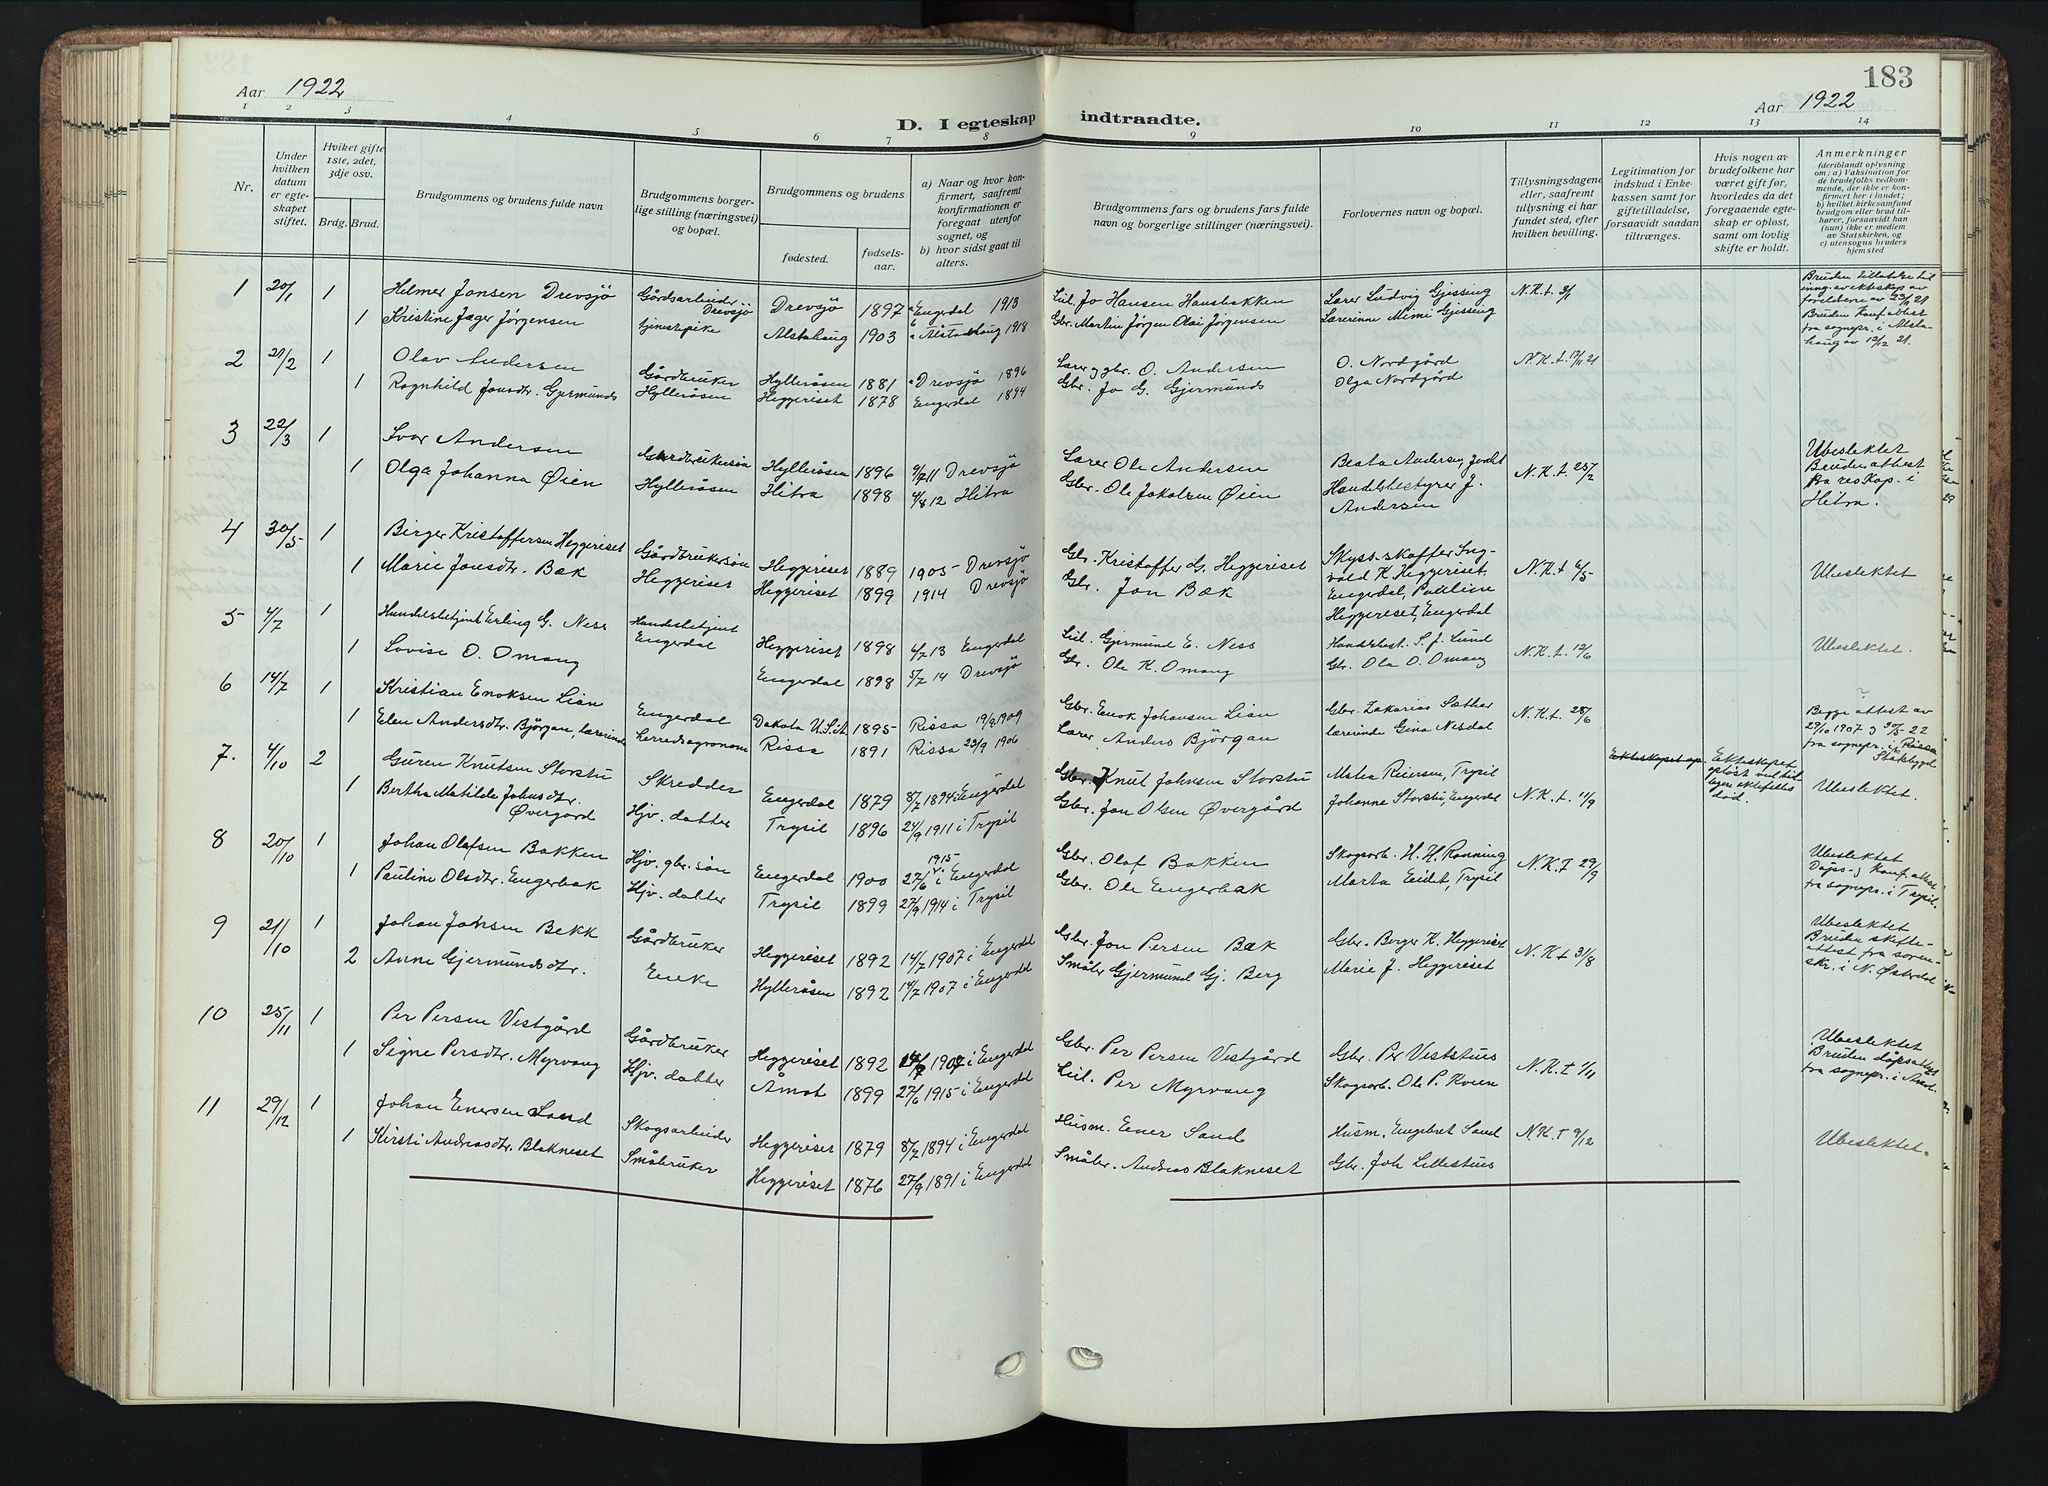 183
Aar 1922
Aar 1922
D. I egteskap indtraadte.
1 2 3 4 5 6 7 8 9 10 11 12 13 14
Nr.
Under hvilken datum er egteskapet stiftet.
Hviket gifte 1ste, 2det, 3dje osv.
Brdg. Brud.
Brudgommens og brudens fulde navn
Brudgommens borgerlige stilling (næringsvei) og bopæl.
Brudgommens og brudens
fødested.
fødselsaar.
a) Naar og hvor konfirmert, saafremt konfirmationen er foregaat utenfor sognet, og
b) hvor sidst gaat til alters.
Brudgommens fars og brudens fars fulde navn og borgerlige stillinger (næringsvei).
Forlovernes navn og bopæl.
Tillysningsdagene eller, saafremt tillysning ei har fundet sted, efter hvilken bevilling.
Legitimation for indskud i Enkekassen samt for giftetilladelse, forsaavidt saadan tiltrænges.
Hvis nogen av brudefolkene har været gift før, hvorledes da det foregaaende egteskap er opløst, samt om lovlig skifte er holdt.
Anmerkninger (deriblandt oplysning om: a) Vaksination for de brudefolks vedkommende, der ikke er konfirmert her i landet; b) hvilket kirkesamfund brudgom eller brud tilhører, forsaavidt han (hun) ikke er medlem av Statskirken, og c) utensogns bruders hjemsted
1 20/1 1 Helmer Jonsen Drevsjö Gårdsarbeider Drevsjö Drevsjö 1897 a Engerdal 1913 Leil. Jo Hansen Hansbakken Lærer Ludvig Gjessing N.K.t. 3/1 Bruden tillatelse til inng. av ekteskap av foreldrene av 23/11 21. Bruden konf. attest fra sognepr. i Alstahaug av 12/12 21.
1 Kristine Jæger Jørgensen tjenestepike Alstahaug 1903 a Alstadhaug 1918 Gbr. Martin Jörgen Olai Jörgensen Lærerinne Mimi Gjessing
2 21/2 1 Olav Andersen Gårdbruker Hylleråsen Hylleråsen 1881 a Drevsjö 1896 Lærer og gbr. O. Andersen O. Nordgård N.K.t. 12/11 21
1 Ragnhild Jonsdtr. Gjermunds Heggeriset 1878 Engerdal 1894 Gbr. Jo G. Gjermunds Olga Nordgård
3 22/3 1 Ivar Andersen Gårdbrukersön Hylleråsen Hylleråsen 1896 9/7 11 Drevsjö Lærer Ole Andersen Beata Andersen, Handelsbestyrer J. Andersen N.K.t. 25/2 Ubeslektet Bruden attest fra res. kap. i Hitra.
1 Olga Johanna Øien Hitra 1898 4/8 12 Hitra Gbr. Ole Jakobsen Øien
4 30/5 1 Birger Kristoffersen Heggeriset Gårdbrukersön Heggeriset Heggeriset 1889 1905 Drevsjö Gbr. Kristoffer G. Heggeriset Skyss-skaffer Ingvald K. Heggeriset, Engerdal, Pauline Heggeriset, Engerdal N.K.t 6/5 Ubeslektet
1 Marie Jonsdtr. Bæk Heggeriset 1899 1914 Drevsjö Gbr. Jon Bæk
5 4/7 1 Handelsbetjent Erling G. Ness Handelsbetjent Engerdal Heggeriset 1898 6/7 13 Engerdal Leil. Gjermund E. Ness Handelsbest. S. J. Lund N.K.t. 12/6 Ubeslektet.
1 Lovise O. Omang Engerdal 1898 5/7 14 Drevsjö Gbr. Ole K. Omang Gbr. Ola O. Omang
6 14/7 1 Kristian Enoksen Lian Engerdal Herredsagronom Dakota U.S.A. 1895 Rissa 19/9 1909 Gbr. Enok Johansen Lian Gbr. Zakarias Sæther N.K.t. 28/6 Begge attest av 29/10 1907 og 30/5 22 fra sognepr. i Rissa Stadsbygd
1 Elen Andersdtr. Björgan, lærerinde Rissa 1891 Rissa 23/9 1906 Lærer Anders Björgan lærerinde Gina Nesdal
7. 4/10 2 Guren Knutsen Storstu Skredder Engerdal 1879 8/7 1894 i Engerdal Gbr. Knut Johnsen Storstu Matea Reiersen, Trysil N.K.t. 11/9 Ekteskapet op. Ekteskapet oplöst ved tidligere ektefelles död. Ubeslektet.
1 Bertha Matilde Johnsdtr. Övergård Hjv. datter Trysil 1896 24/9 1911 i Trysil Gbr. Jon Olsen Øvergård Johanne Storstu, Engerdal
8 20/10 1 Johan Olafsen Bakken Hjv. gbr. sön Engerdal 1900 27/6 1915 i Engerdal Gbr. Olaf Bakken Skogsarb. H. H. Rönning N.K.T 29/9 Ubeslektet Dåps- og konf. attest fra sognepr. i Trysil.
1 Pauline Olsdtr. Engerbak Hjv. datter Trysil 1899 27/9 1914 i Trysil Gbr. Ole Engerbak Marta Eidet, Trysil
9 21/10 1 Johan Johnsen Bekk Gårdbruker Heggeriset 1892 14/7 1907 i Engerdal Gbr. Jon Persen Bæk Gbr. Berger K. Heggeriset N.K.t 31/8 Ubeslektet Bruden skifteattest fra sorenskr. i N. Østerdal
2 Anne Gjermundsdtr. Enke Hylleråsen 1892 14/7 1907 i Engerdal Småbr Gjermund Gj. Berg Marie J. Heggeriset
10 25/11 1 Per Persen Vestgård Gårdbruker Heggeriset 1892 14/7 1907 i Engerdal Gbr. Per Persen Vestgård Gbr. Per Veststuis N.K.t 1/11 Ubeslektet Bruden dåpsattest fra sognepr. i Åmot.
1 Signe Persdtr. Myrvang Hjv. datter Åmot 1899 27/6 1915 i Engerdal Leil. Per Myrvang Skogsarb. Ole P. Kvien
11 29/12 1 Johan Enersen Sand Skogsarbeider Heggeriset 1879 8/7 1894 i Engerdal Husm. Ener Sand Husm. Engebret Sand N.K.T 9/12 Ubeslektet.
1 Kirsti Andreasdtr. Blakneset Småbruker Heggeriset 1876 27/9 1891 i Engerdal Småbr. Andreas Blakneset Gbr. Joh Lillestuis